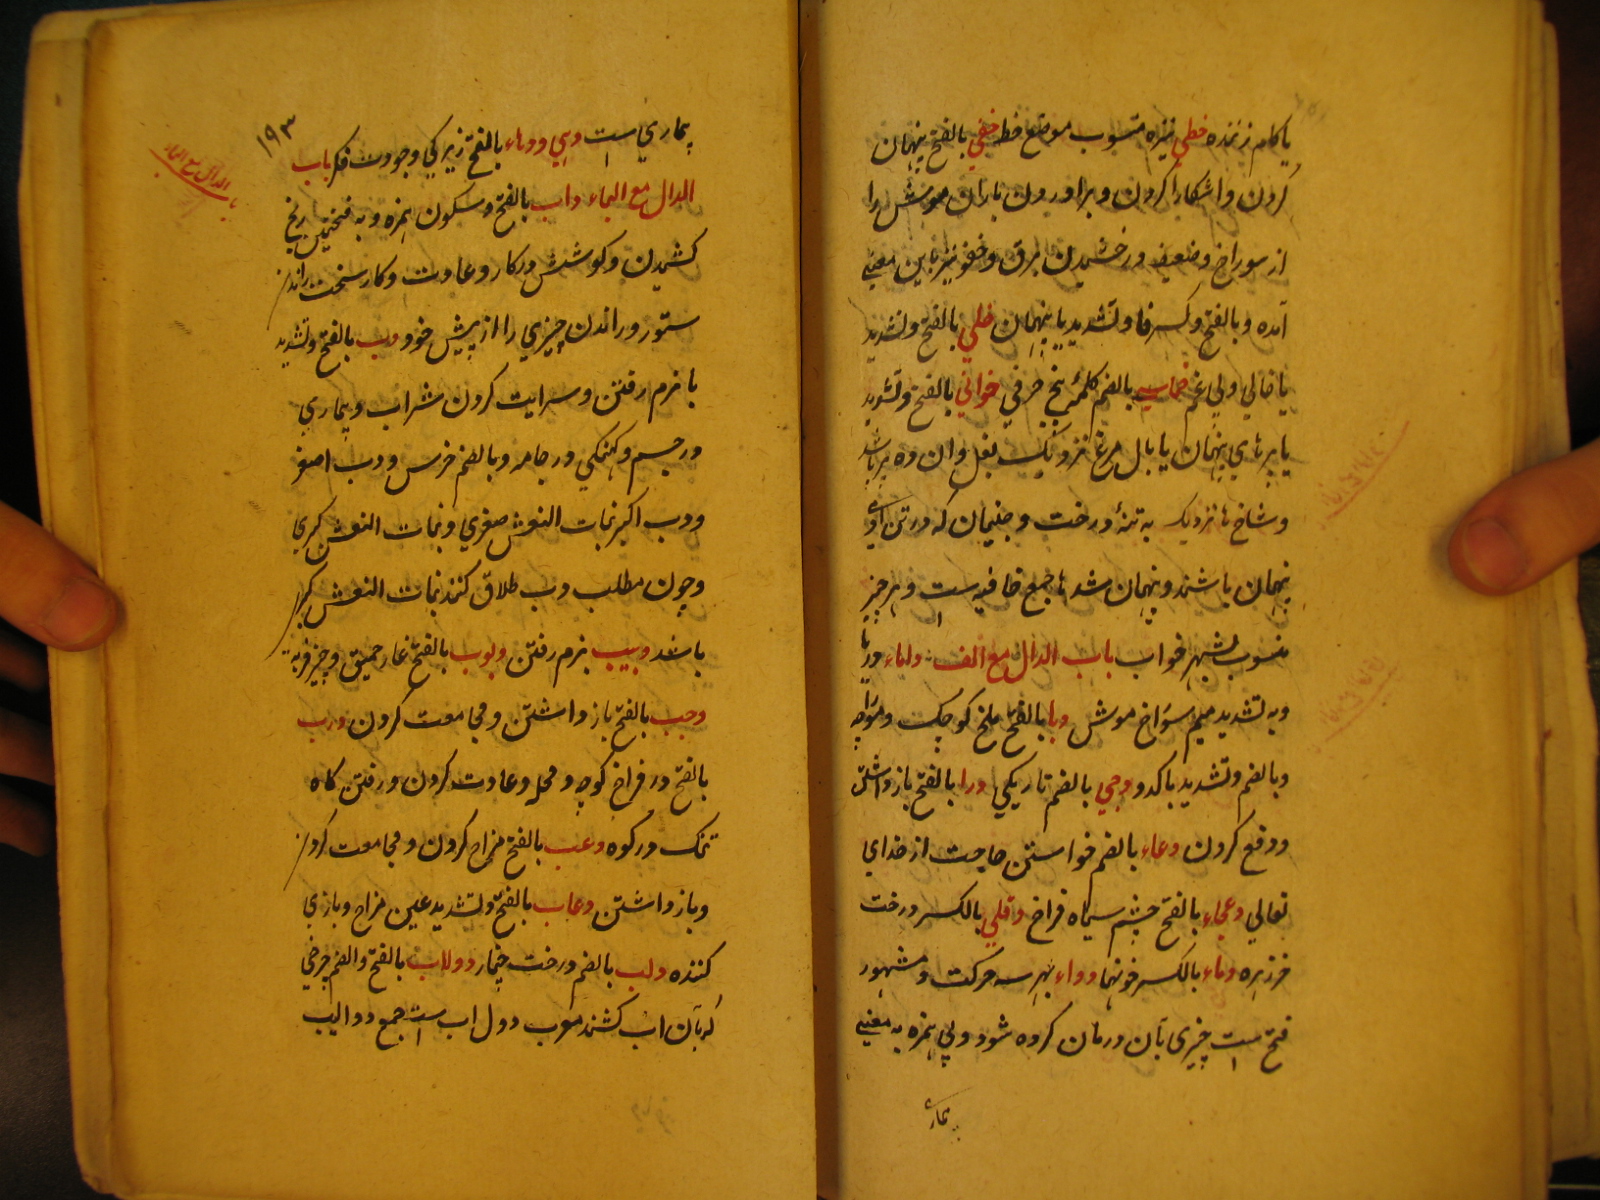 یا کام زننده خطی نیزه منسوب بموضع خط خفی بالفتح پنهان
کردن و اشکارا کردن و براوردن باران موش را
از سوراخ و ضعیف درخشیدن برق و خفو نیز باین معنی
آمده و بالفتح و کسر فا و تشدید یا پنهان خلی بالفتح و تشدید
یا خالی و بی غم خماسی بالضم کلمه پنج حرفی خوافی بالفتح و تشدید
یا پرهای پنهان یا بال مرغ نزدیک بغل و ان ده پر باشد
و شاخ ها نزدیک به تنه درخت و جنیان که در تن آدمی
پنهان باشند و پنهان شدها جمع خافیه است و هر چیز
منسوب بشهر خواب باب الدال مع الف داماء دریا
و به تشدید میم سوراخ موش دبا بالفتح ملخ کوچک و مورچه
و بالضم و تشدید با کدو دجی بالضم تاریکی درا بالفتح بازداشتن
و دفع کردن دعاء بالضم خواستن حاجت از خدای
تعالی دعجاء بالفتح چشم سیاه فراخ دفلی بالکسر درخت
خرزهره دماء بالکسر خونها دواء بهر سه حرکت و مشهور
فتح است چیزی بآن درمان کرده شود و بی همزه به معنی
بیماری
۱۹۳
بیماری است دهی و دهاء بالفتح زیرکی و جودت فکر باب
الدال مع الباء داب بالفتح و سکون همزه و به فتحتین رنج
باب الدال مع الباء
کشیدن و کوشش در کار و عادت و کار سخت راندن
ستور و راندن چیزی را از پیش خود دب بالفتح و تشدید
با نرم رفتن و سرایت کردن شراب و بیماری
در جسم و کهنگی در جامه و بالضم خرس و دب اصغر
و دب اکبر نبات النعش صغری و نبات النعش کبری
و چون مطلب دب طلاق کنند نبات النعش کبری
باشد دبیب نرم رفتن دبوب بالفتح غار عمیق و چیز فربه
دجب بالفتح باز داشتن و مجامعت کردن درب
بالفتح در فراخ کوچه و محل و عادت کردن و رفتن کاه
تنک در کوه دعب بالفتح مزاح کردن و مجامعت کردن
و باز داشتن دعاب بالفتح و تشدید عین مزاح و بازی
کننده دلب بالضم درخت چنار دولاب بالفتح و الضم چرخی
که بآن اب کشند معرب دول اب است جمع دوالیب